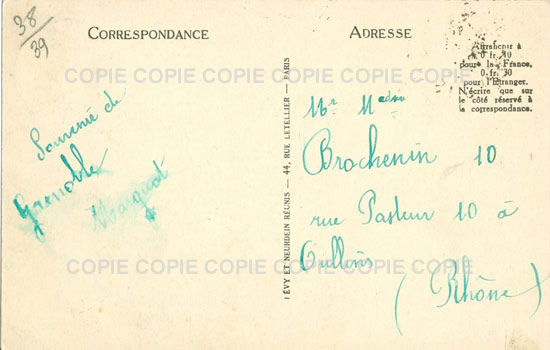 38
39
CORRESPONDANCE
Souvenir de
Grenoble
Marguot
LÉVY ET NEURDEIN RÉUNIS — 44, RUE LETELLIER — PARIS
ADRESSE
Affranchir à
0 fr. 10
pour la France,
0. fr. 30
pour l'Etranger.
N'écrire que sur
le côté réservé à
la correspondance.
Mr Madme
Brochenin 10
rue Pasteur 10 à
Oullins
(Rhône)
COPIE COPIE COPIE COPIE COPIE COPIE COPIE
COPIE COPIE COPIE COPIE COPIE COPIE COPIE